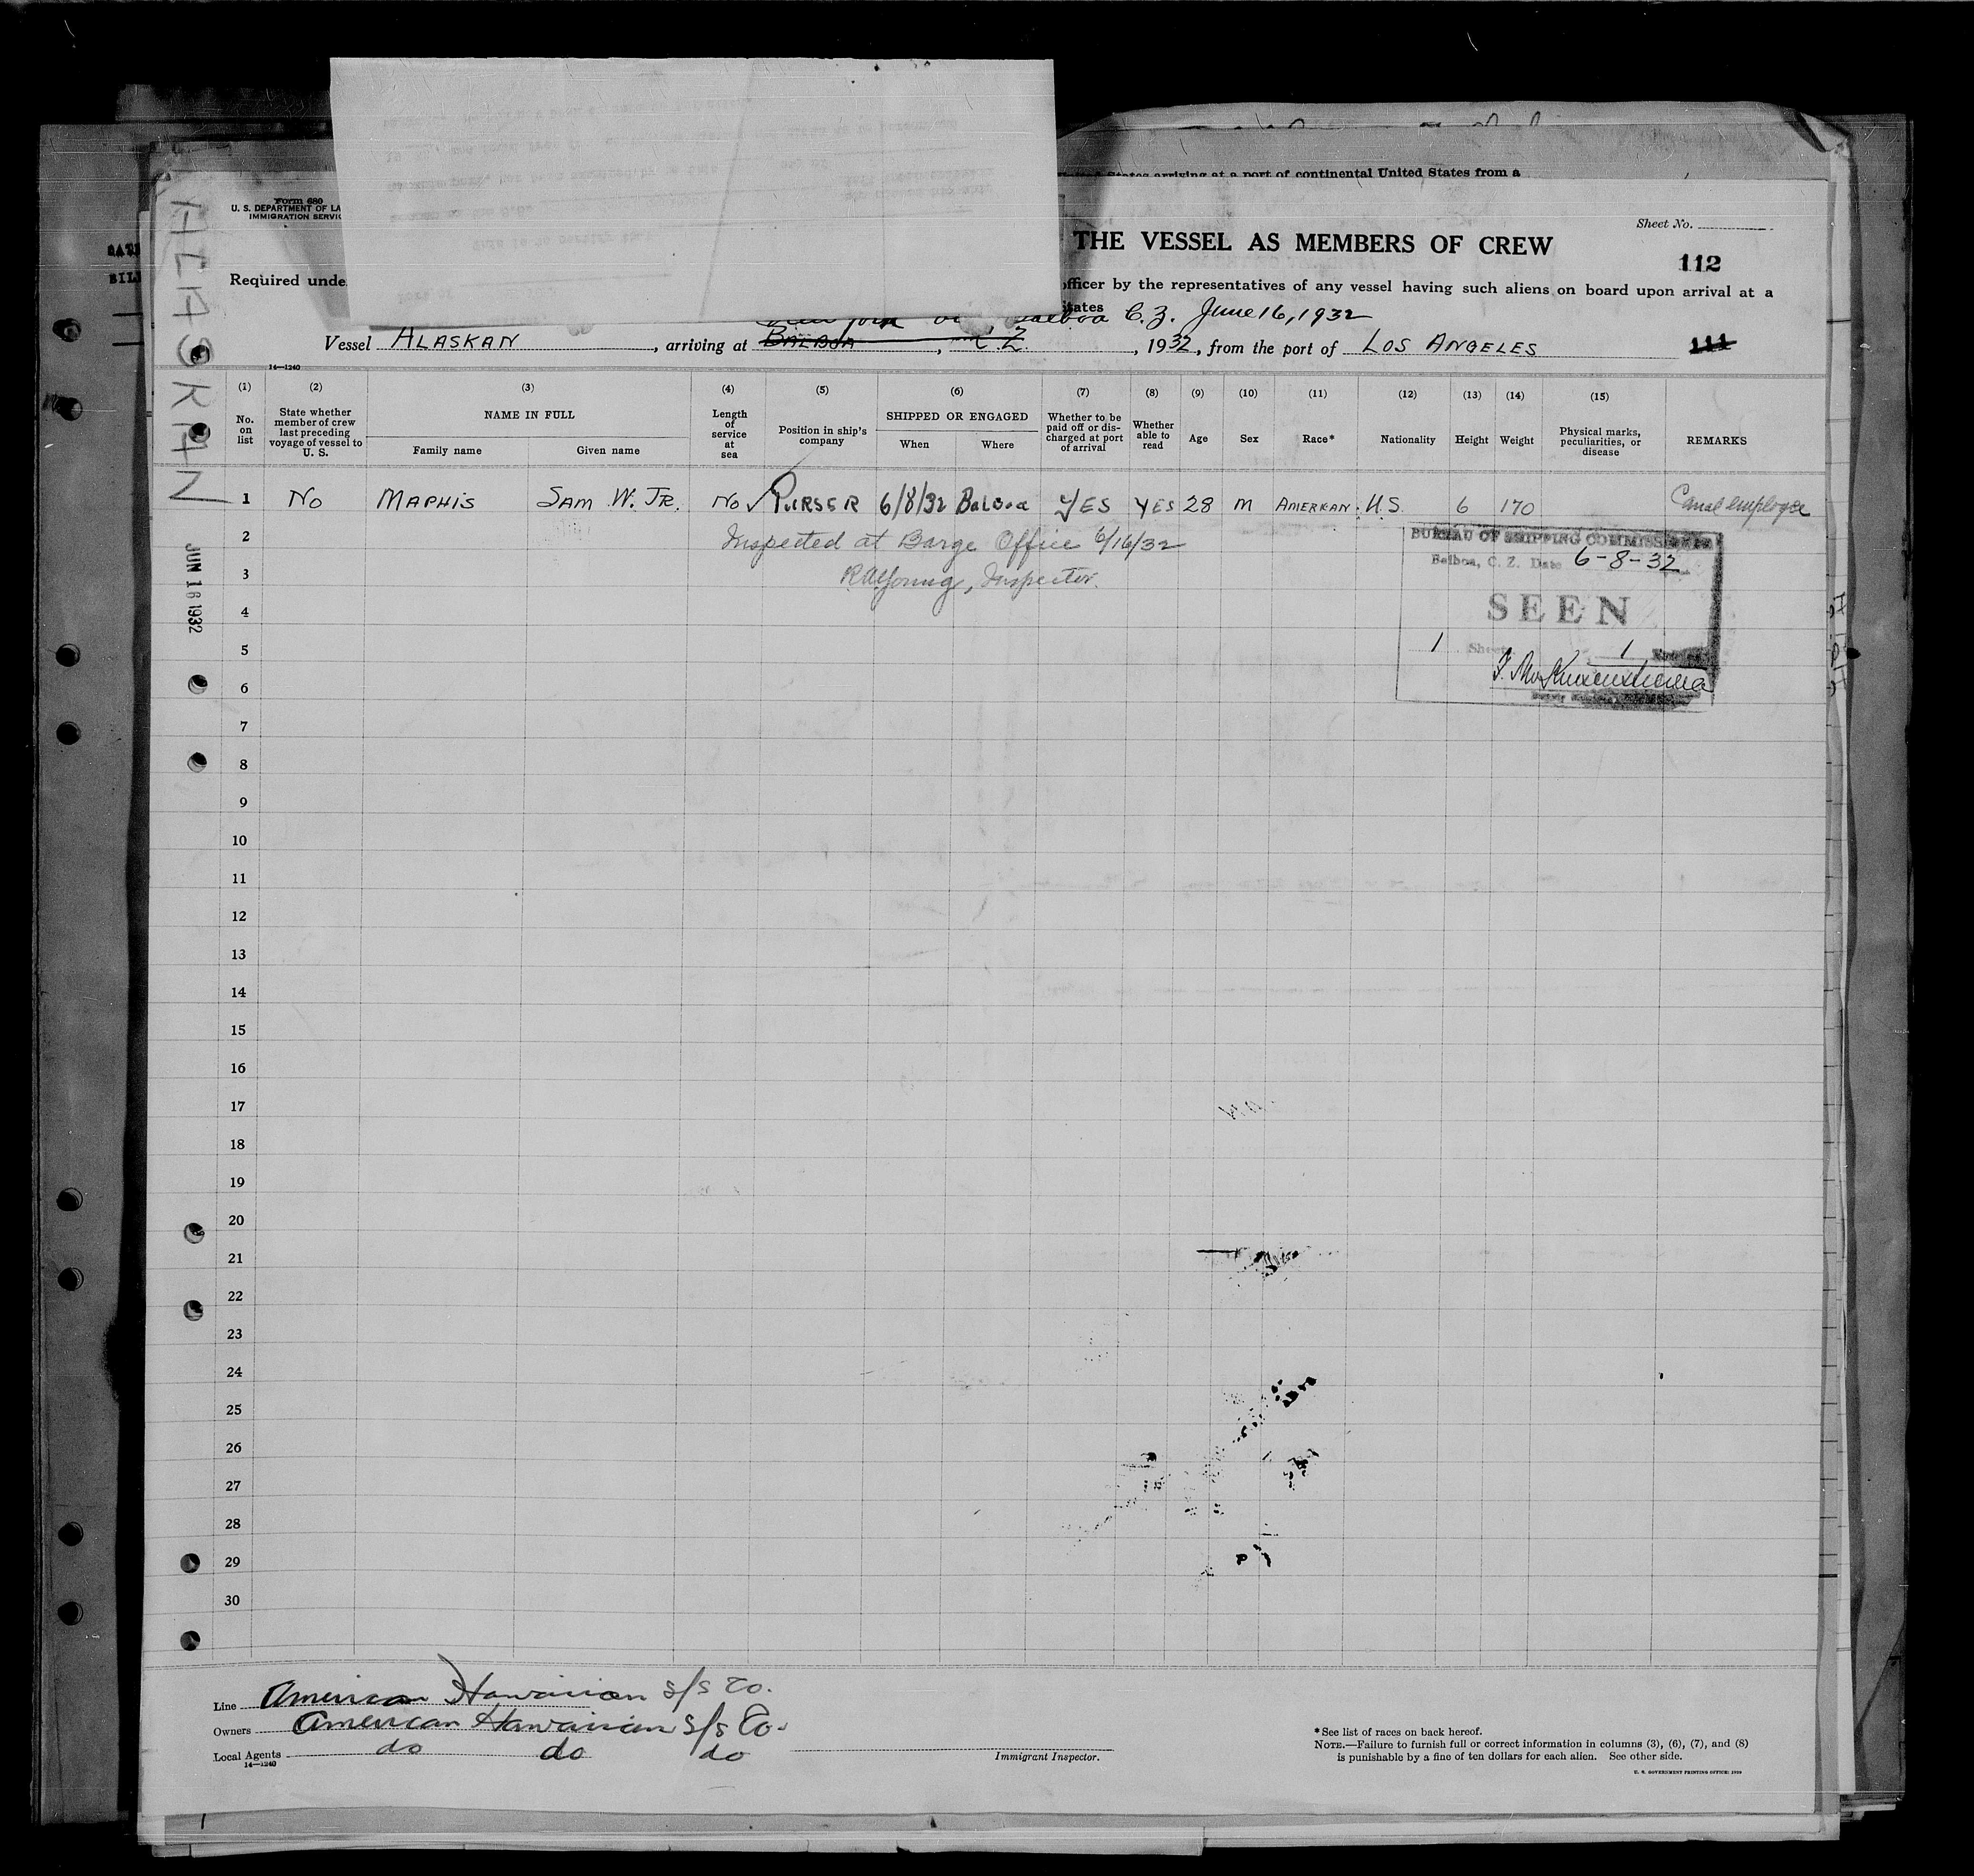 States arriving at a port of continental United States from a
Form 680
U. S. DEPARTMENT OF LA
IMMIGRATION SERVIC
Sheet No.
THE VESSEL AS MEMBERS OF CREW
112
Required unde
officer by the representatives of any vessel having such aliens on board upon arrival at a
tates
Balboa C.Z. June 16, 1932
Vessel ALASKAN, arriving at BALBOA, C.Z., 1932, from the port of LOS ANGELES
111
14—1240
ALASKAN
JUN 16 1932
(1) (2) (3) (4) (5) (6) (7) (8) (9) (10) (11) (12) (13) (14) (15)
No. on list
State whether member of crew last preceding voyage of vessel to U. S.
NAME IN FULL
Family name
Given name
Length of service at sea
Position in ship's company
SHIPPED OR ENGAGED
When
Where
Whether to be paid off or discharged at port of arrival
Whether able to read
Age
Sex
Race*
Nationality
Height
Weight
Physical marks, peculiarities, or disease
REMARKS
1 No MAPHIS SAM W. JR. No ✓ PURSER 6/8/32 BALBOA YES YES 28 M AMERICAN U.S. 6 170 Canal employee
2 Inspected at Barge Office 6/16/32
3 Inspector.
BUREAU OF SHIPPING COMMISSIONER
Balboa, C. Z. Date 6-8-32
SEEN
1 Sheet 1
4
5
6
7
8
9
10
11
12
13
14
15
16
17
18
19
20
21
22
23
24
25
26
27
28
29
30
Line American Hawaiian S/S Co.
Owners American Hawaiian S/S Co.
Local Agents do do do
14—1240
Immigrant Inspector.
*See list of races on back hereof.
NOTE.—Failure to furnish full or correct information in columns (3), (6), (7), and (8)
is punishable by a fine of ten dollars for each alien. See other side.
U. S. GOVERNMENT PRINTING OFFICE: